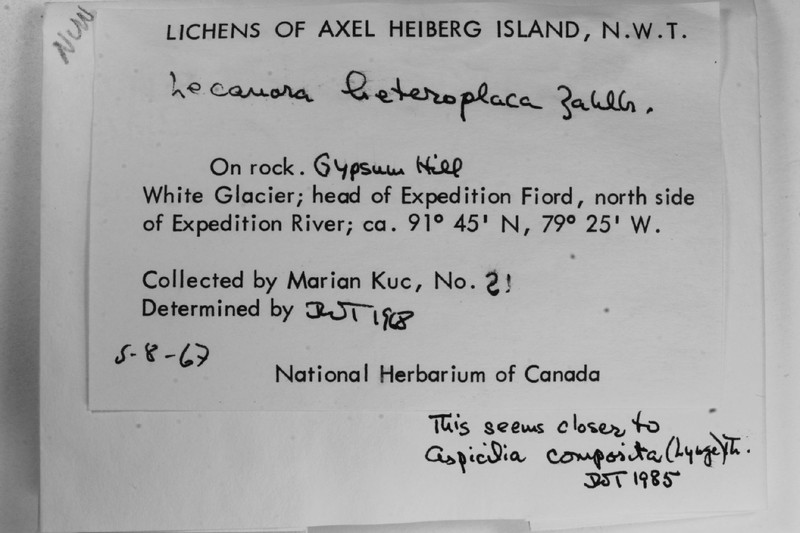 NUW
LICHENS OF AXEL HEIBERG ISLAND, N.W.T.
Lecanora heteroplaca Zahlbr.
On rock. Gypsum Hill
White Glacier; head of Expedition Fiord, north side
of Expedition River; ca. 91° 45' N, 79° 25' W.
Collected by Marian Kuc, No. 21
Determined by JWT 1968
5-8-67
National Herbarium of Canada
This seems closer to
Aspicilia composita (Lynge) Th.
JWT 1985